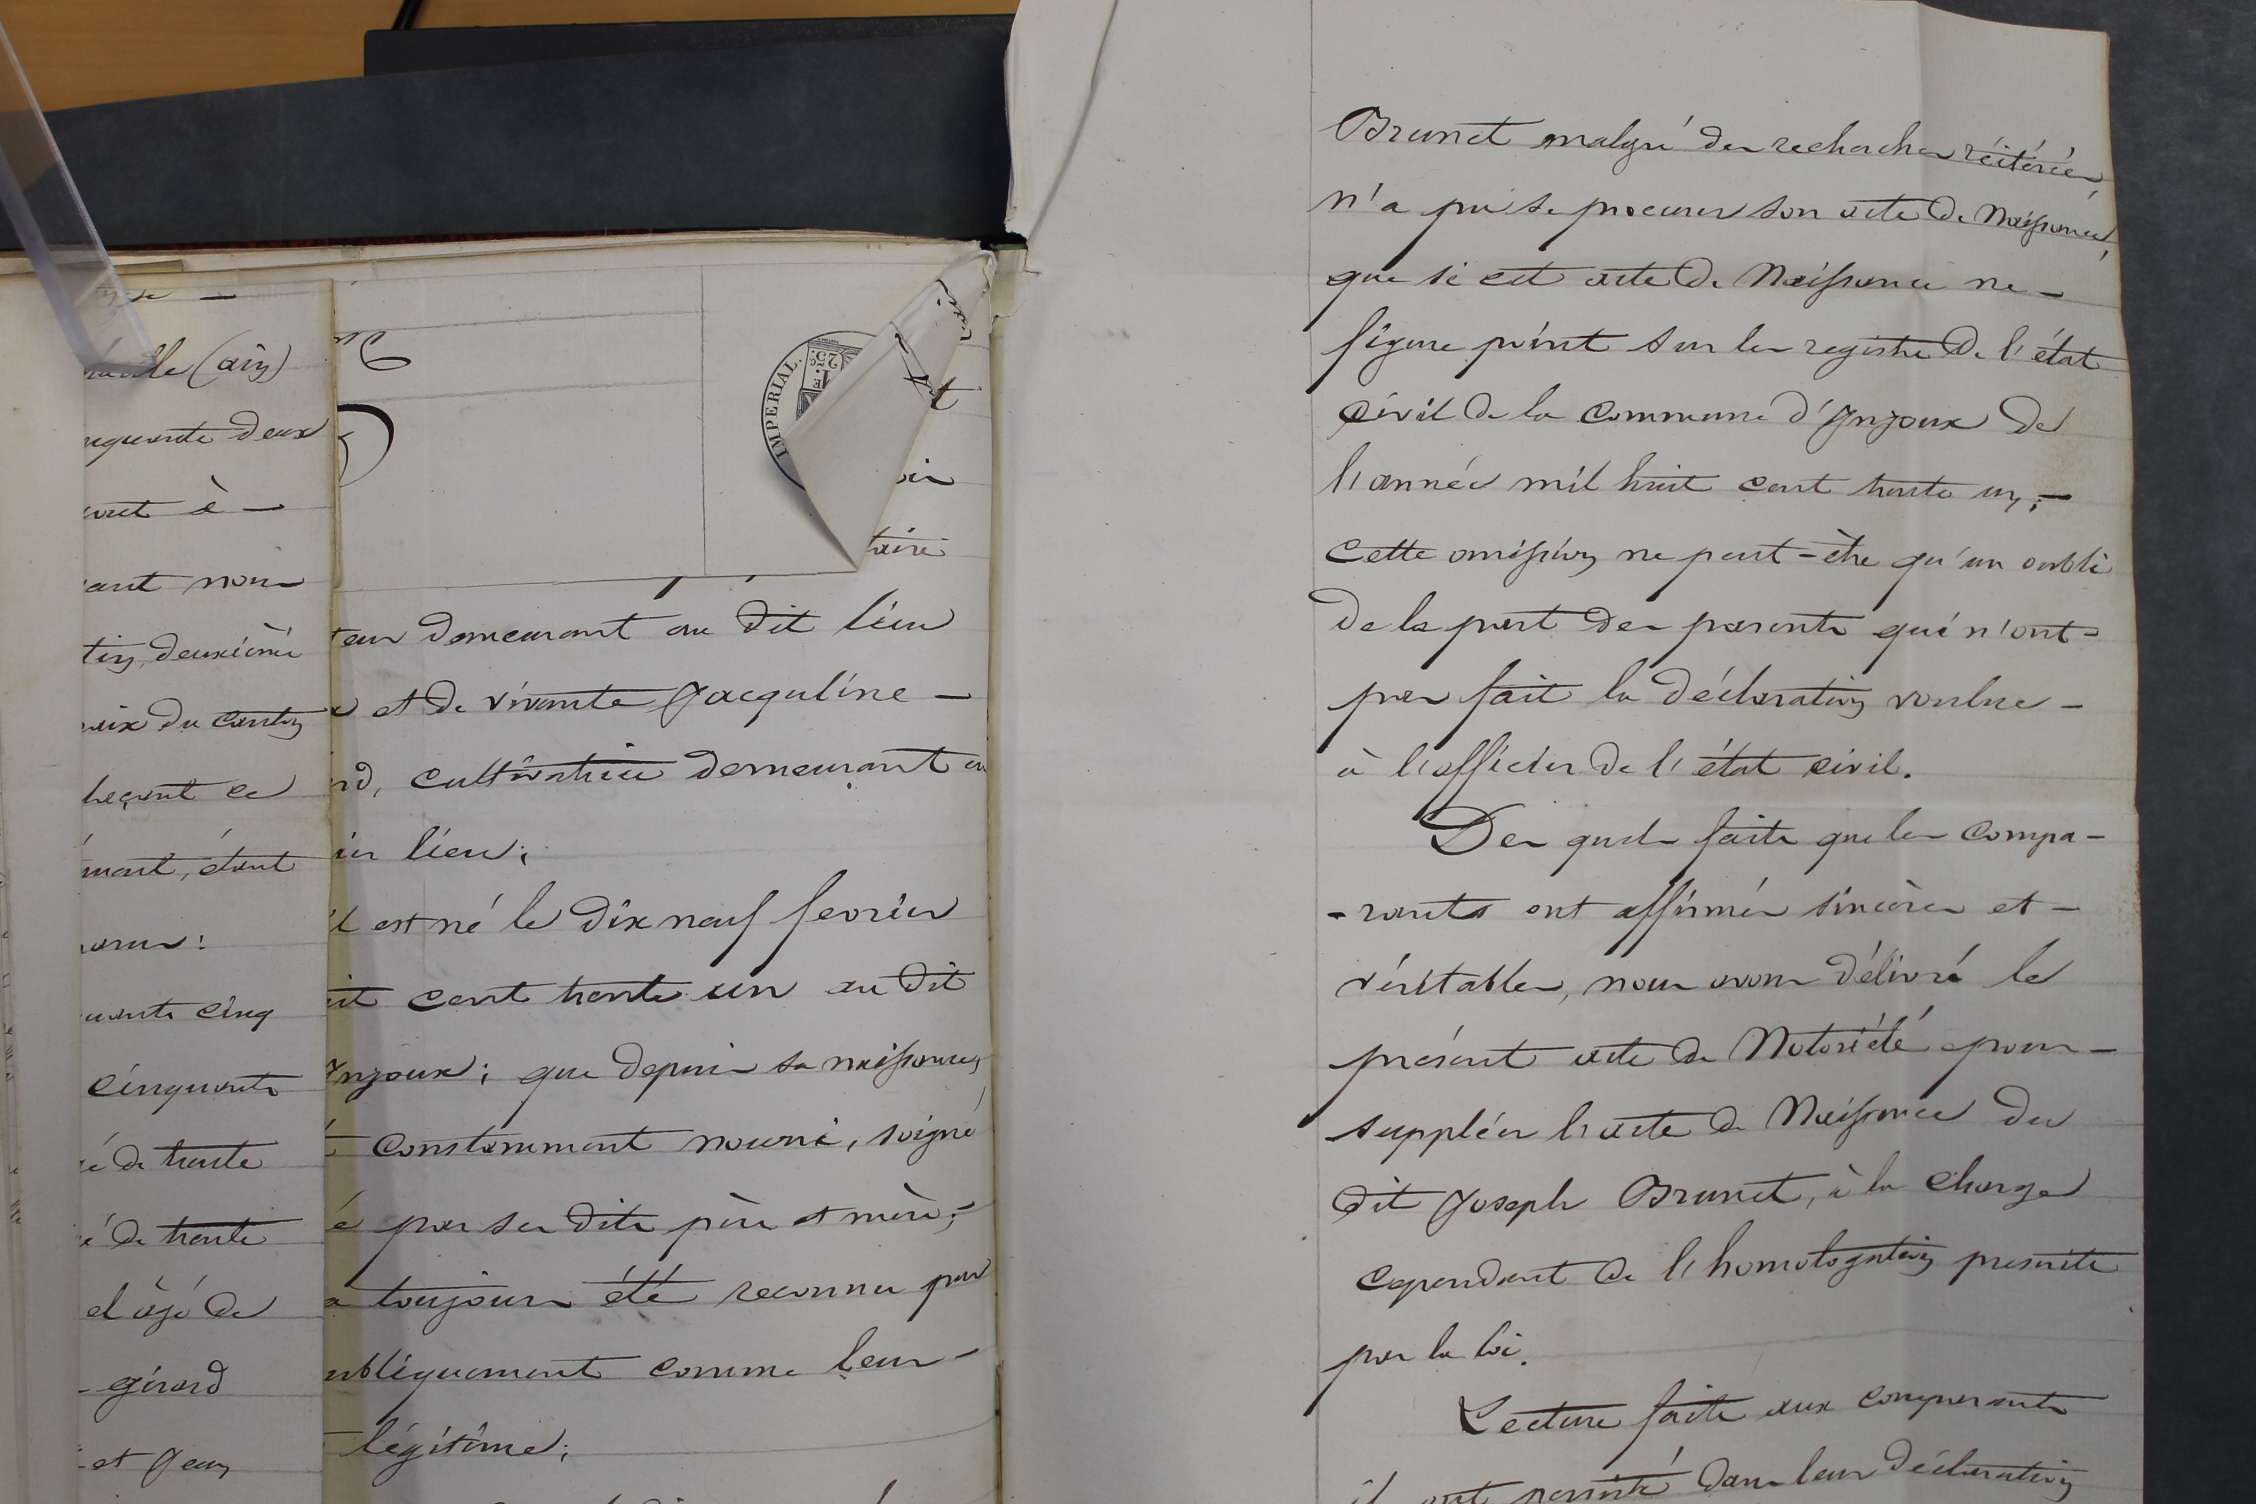 (ain)
deux
à —
nous
deuxième
du canton
ce
étant
cinq
cinquante
de trente
de trente
âgé de
girard
et Jean
IMPERIAL.
25 c.
demeurant au dit lieu
et de vivante Jacquline —
cultivatrice demeurant au
lieu;
est né le dix neuf fevrier
cent trente un au dit
Injoux; que depuis sa naissance,
constamment nourri, soigné
par ses dits père et mère;
toujours été reconnu par
comme leur —
légitime;
Brunet malgré des recherches réitérées,
n'a pu se procurer son acte de Naissance,
que si cet acte de Naissance ne —
figure point sur les registre de l'état
civil de la commune d'Injoux de
l'année mil huit cent trente un; —
cette omission ne peut-être qu'un oubli
de la part des parents qui n'ont —
pas fait la déclaration voulue —
à l'officier de l'état civil.
Des quels faits que les compa-
-rants ont affirmés sincères et —
véritables, nous avons délivré le
présent acte de Notoriété pour —
suppléer l'acte de Naissance du
dit Joseph Brunet, à la charge
cependant de l'homologation prescrite
par la loi.
Lecture faite aux comparants
ont persisté dans leur déclaration